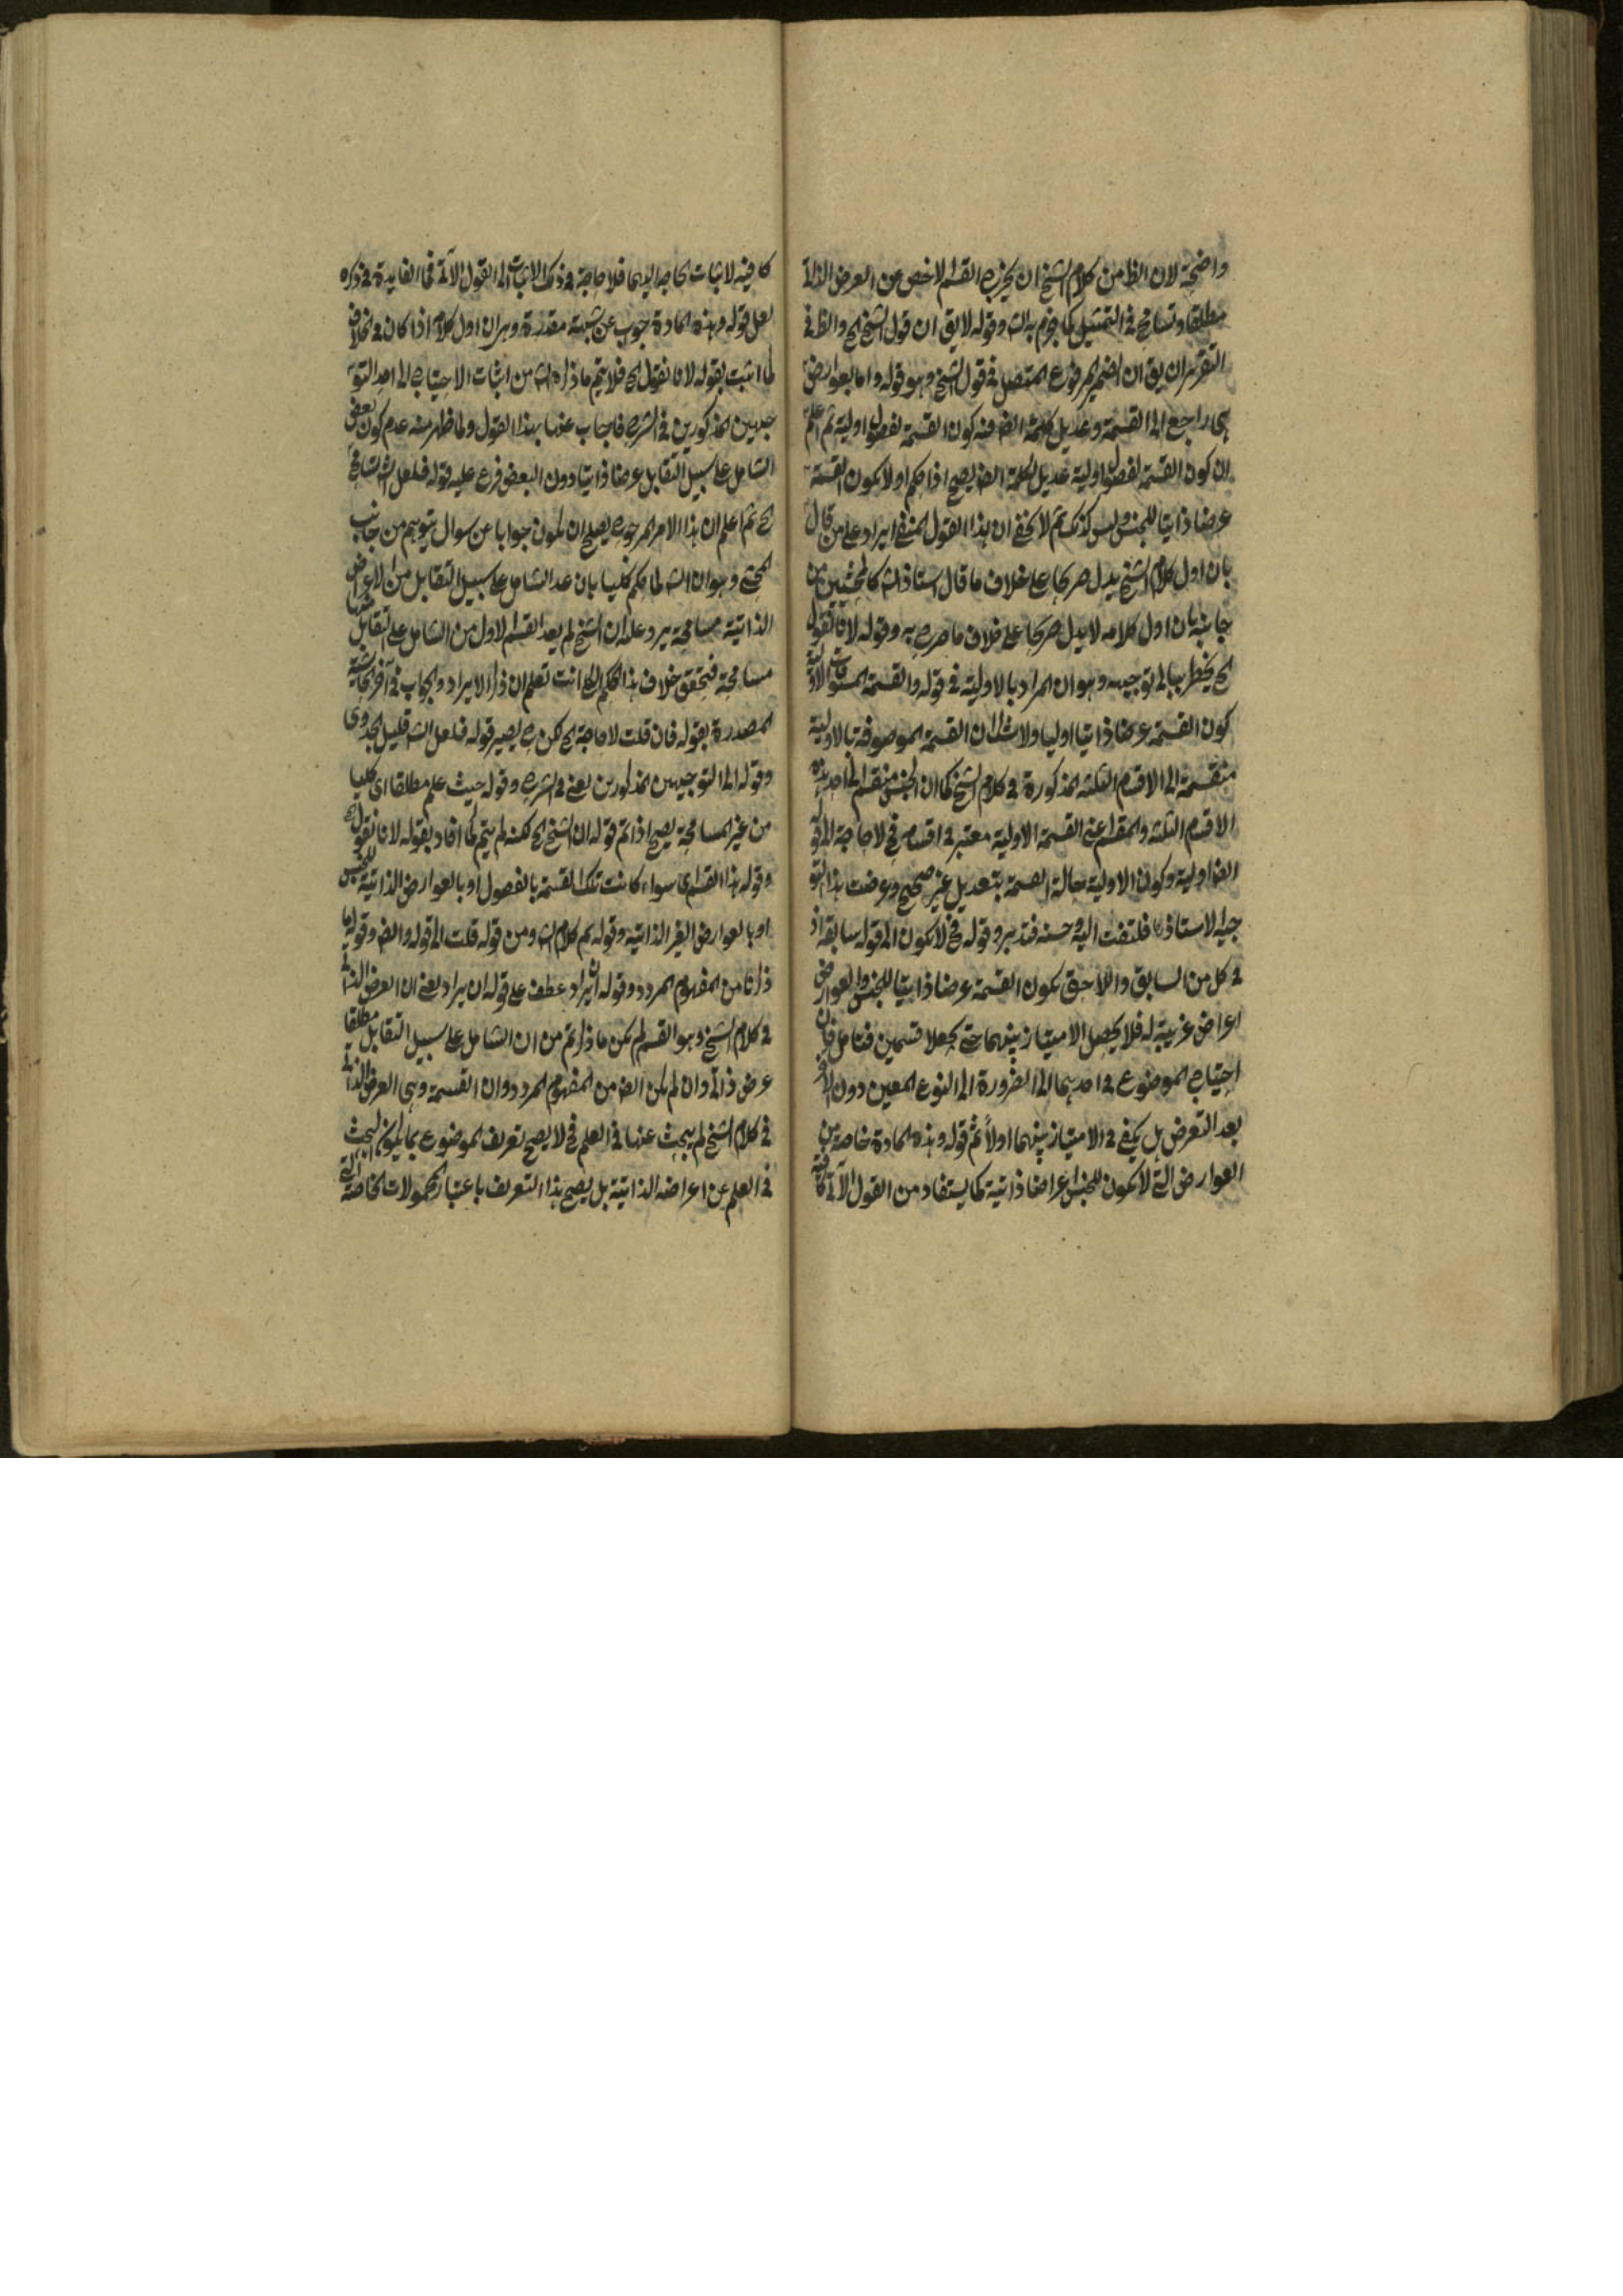 واضحة لان الظ من كلام الشيخ ان يخرج القسم الاخص من العرض الذاتي
مطلقا وتسامح في التمثيل كما جزم به الش وقوله لا يق ان قول الشيخ الخ والظ في
التقرير ان يق ان الضمير المرفوع المتصل في قول الشيخ وهو قوله واما بعوارض
هي راجع الى القسمة وعديل كلمة ايضا فيه كون القسمة بفصول اولية ثم اعلم
ان كون القسمة بفصول اولية عديل لكلمة ايضا يصح اذا حكم اولا بكون القسمة
عرضا ذاتيا للجنس وليس كذلك ثم لا يخفى ان هذا القول المنفي ايراد على من قال
بان اول كلام الشيخ يدل صريحا على خلاف ما قال استاذ الش كالمحشين من
جانبه بان اول كلامه لا يدل صريحا على خلاف ما صرح به وقوله لانا نقول
الخ يخطر ببالي توجيهه وهو ان المراد بالاولية في قوله والقسمة المستوفاة الاولية
كون القسمة عرضا ذاتيا اوليا ولا شك ان القسمة الموصوفة بالاولية
منقسمة الى الاقسام الثلثة المذكورة في كلام الشيخ كما ان الجنس منقسم الى احد هذه
الاقسام الثلثة والمقسم اعني القسمة الاولية معتبر في اقسامه فح لا حاجة الى قوله
ايضا اولية وكون الاولية حالة القسمة بتعديل غير صحيح وعرضت هذا التو
جيه لاستاذي فلتفت اليه وحسنه فتدبر وقوله فح لا يكون الى قوله سابقه اذ
في كل من السابق واللاحق يكون القسمة عرضا ذاتيا للجنس والعوارض
اعراض غريبة له فلا يحصل الامتياز بينهما حتى يجعلا قسمين فتامل فان
احتياج الموضوع في احدهما الى الضرورة الى النوع المعين دون الاخر
بعد التعرض بل يكفي في الامتياز بينهما اولا ثم قوله وهذه المادة خاصة من
العوارض التي لا يكون للجنس اعراضا ذاتية كما يستفاد من القول الآتي كافية
كافية لاثبات الحاجة اليهما فلا حاجة في ذلك الاثبات الى القول الآتي فما الفايدة في ذكره
لعل قوله وهذه المادة جواب عن شبهة مقدرة وهي ان اول كلام اذا كان في مخالف
لما اثبت بقوله لانا نقول الخ فلا يتم ما ذكره الش من اثبات الاحتياج الى احد التو
جيهين المذكورين في الشرح فاجاب عنها بهذا القول ولما ظهر منه عدم كون بعض
الشامل على سبيل التقابل عرضا ذاتيا دون البعض فرع عليه قوله فلعل الش تسامح
الخ ثم اعلم ان هذا الامر المرجوح يصلح ان يكون جوابا عن سوال يتوهم من جانب
المحشي وهو ان الش لما حكم كليا بان عد الشامل على سبيل التقابل من الاعراض
الذاتية مسامحة يرد عليه ان الشيخ لم يعد القسم الاول من الشامل على التقابل منها
مسامحة فتحقق خلاف هذا الحكم الكلي انت تعلم ان ذكر الايراد والجواب في آخر الحاشية
المصدرة بقوله فان قلت لا حاجة الخ لكن ح يصير قوله فلعل الش قليل الجدوى
وقوله الى التوجيهين المذكورين يعني في الشرح وقوله حيث علم مطلقا اي كليا
من غير المسامحة يصح اذا تم قوله ان الشيخ الخ لكنه لم يتم كما افاد بقوله لانا نقول الخ
وقوله هذا القسم اي سواء كانت تلك القسمة بالفصول او بالعوارض الذاتية للجنس
او بالعوارض الغير الذاتية وقوله ثم كلام الش ومن قوله قلت الى قوله وايضا وقوله ما
ذكرنا من المفهوم المردد وقوله ان يراد عطف على قوله ان يراد يعني ان العرض الذاتي
في كلام الشيخ وهو القسم لم يكن ما ذكرتم من ان الشامل على سبيل التقابل مطلقا
عرض ذاتي وان لم يكن ايضا من المفهوم المردد وان القسمة وهي العرض الذاتي
في كلام الشيخ لم يبحث عنها في العلم فح لا يصح تعريف الموضوع بما يكون البحث
في العلم عن اعراضه الذاتية بل يصح هذا التعريف باعتبار المحمولات الخاصة التي